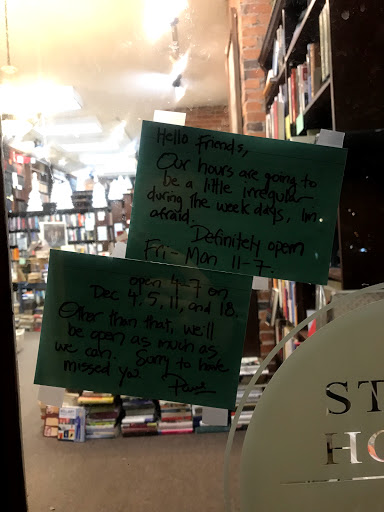 Hello Friends,
Our hours are going to
be a little irregular
during the week days, Im
afraid.
Definitely open
Fri-Mon 11-7.
open 4-7 on
Dec 4, 5, 11, and 18.
Other than that, we'll
be open as much as
we can. Sorry to have
missed you.
ST
HO